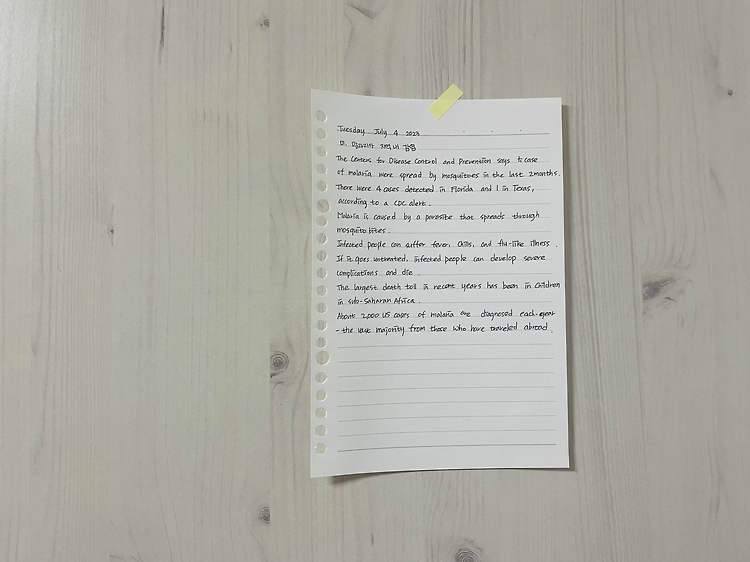 Tuesday July 4 2023
미, 말라리아 지역 내 감염
The Centers for Disease Control and Prevention says 5 case
of malaria were spread by mosquitoes in the last 2months.
There were 4 cases detected in Florida and 1 in Texas,
according to a CDC alert.
Malaria is caused by a parasite that spreads through
mosquito bites.
Infected people can suffer fever, chills, and flu-like illness.
If it goes untreated, infected people can develop severe
complications and die.
The largest death toll in recent years has been in children
in sub-Saharan Africa.
About 2,000 US cases of malaria are diagnosed each year
- the vast majority from those who have traveled abroad.